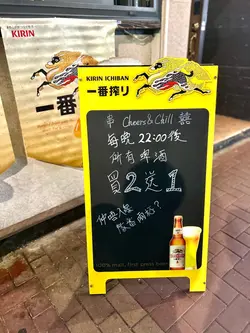 KIRIN
一番搾
KIRIN ICHIBAN
一番搾り
串 Cheers & Chill 囍
每晚 22:00後
所有啤酒
買2送1
仲唔入嚟
100% malt, first press beer